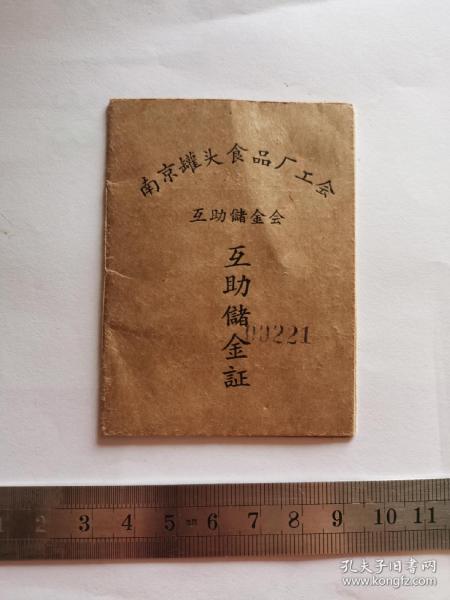 南京罐头食品厂工会
互助儲金会
互助儲金証
00221
1 2 3 4 5 6 7 8 9 10 11
孔夫子旧书网
www.kongfz.com